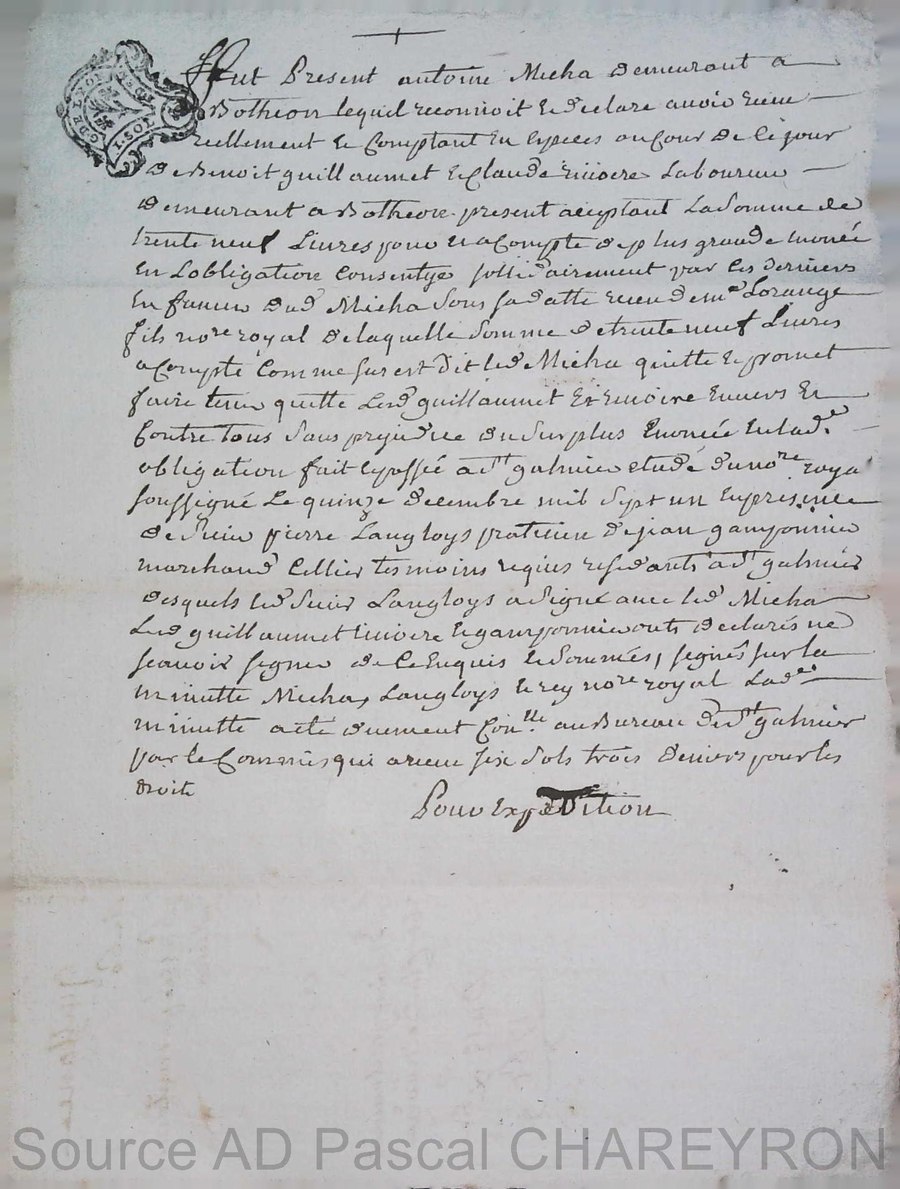 G. DE LYON
1. SOL.
Fut Present antoine Micha demeurant a
Botheon lequel reconnoit et declare avoir receu
reellement et Comptant En Especes au Cour de Ce jour
de Benoit guillaumet et Claude Laboureur
demeurant a Botheon present aceptant La Somme de
trente neuf Livres pour En acompte de plus grande Enonée
En Lobligation Consentye sollidairement par les derniers
En faveur dud Micha Sous sa datte receu de me Lorange
fils nore royal de laquelle Somme de trente neuf Livres
a Compte Comme sur est dit led Micha quitte et promet
faire tenir quitte Lesd guillaumet Et Envers Et
Contre tous Sans prejudice du Surplus Enonée En lad.e
obligation fait et passé a st galmier etude du nore royal
soussigné Le quinze decembre mil Sept un En presence
de Pierre Langloys praticien de jean gamponnier
marchand Cellier tesmoins requis residants a st galmier
desquels led Sieur Langloys a Signé avec led Micha
Lesd guillaumet et gamponnier onts declarés ne
scavoir signer de Ce Enquis et Sommés, signés sur la
minutte Micha, Langloys et rey nore royal Lad.e
minutte a ete duement Conlle. au Bureau de st galmier
par le Commis qui a receu six Sols trois deniers pour les
droits
Pour Expedition
Source AD Pascal CHAREYRON